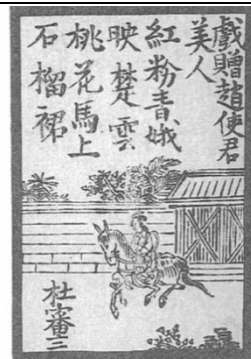 戲贈趙使君
美人
紅粉青娥
映楚雲
桃花馬上
石榴裙
杜審三